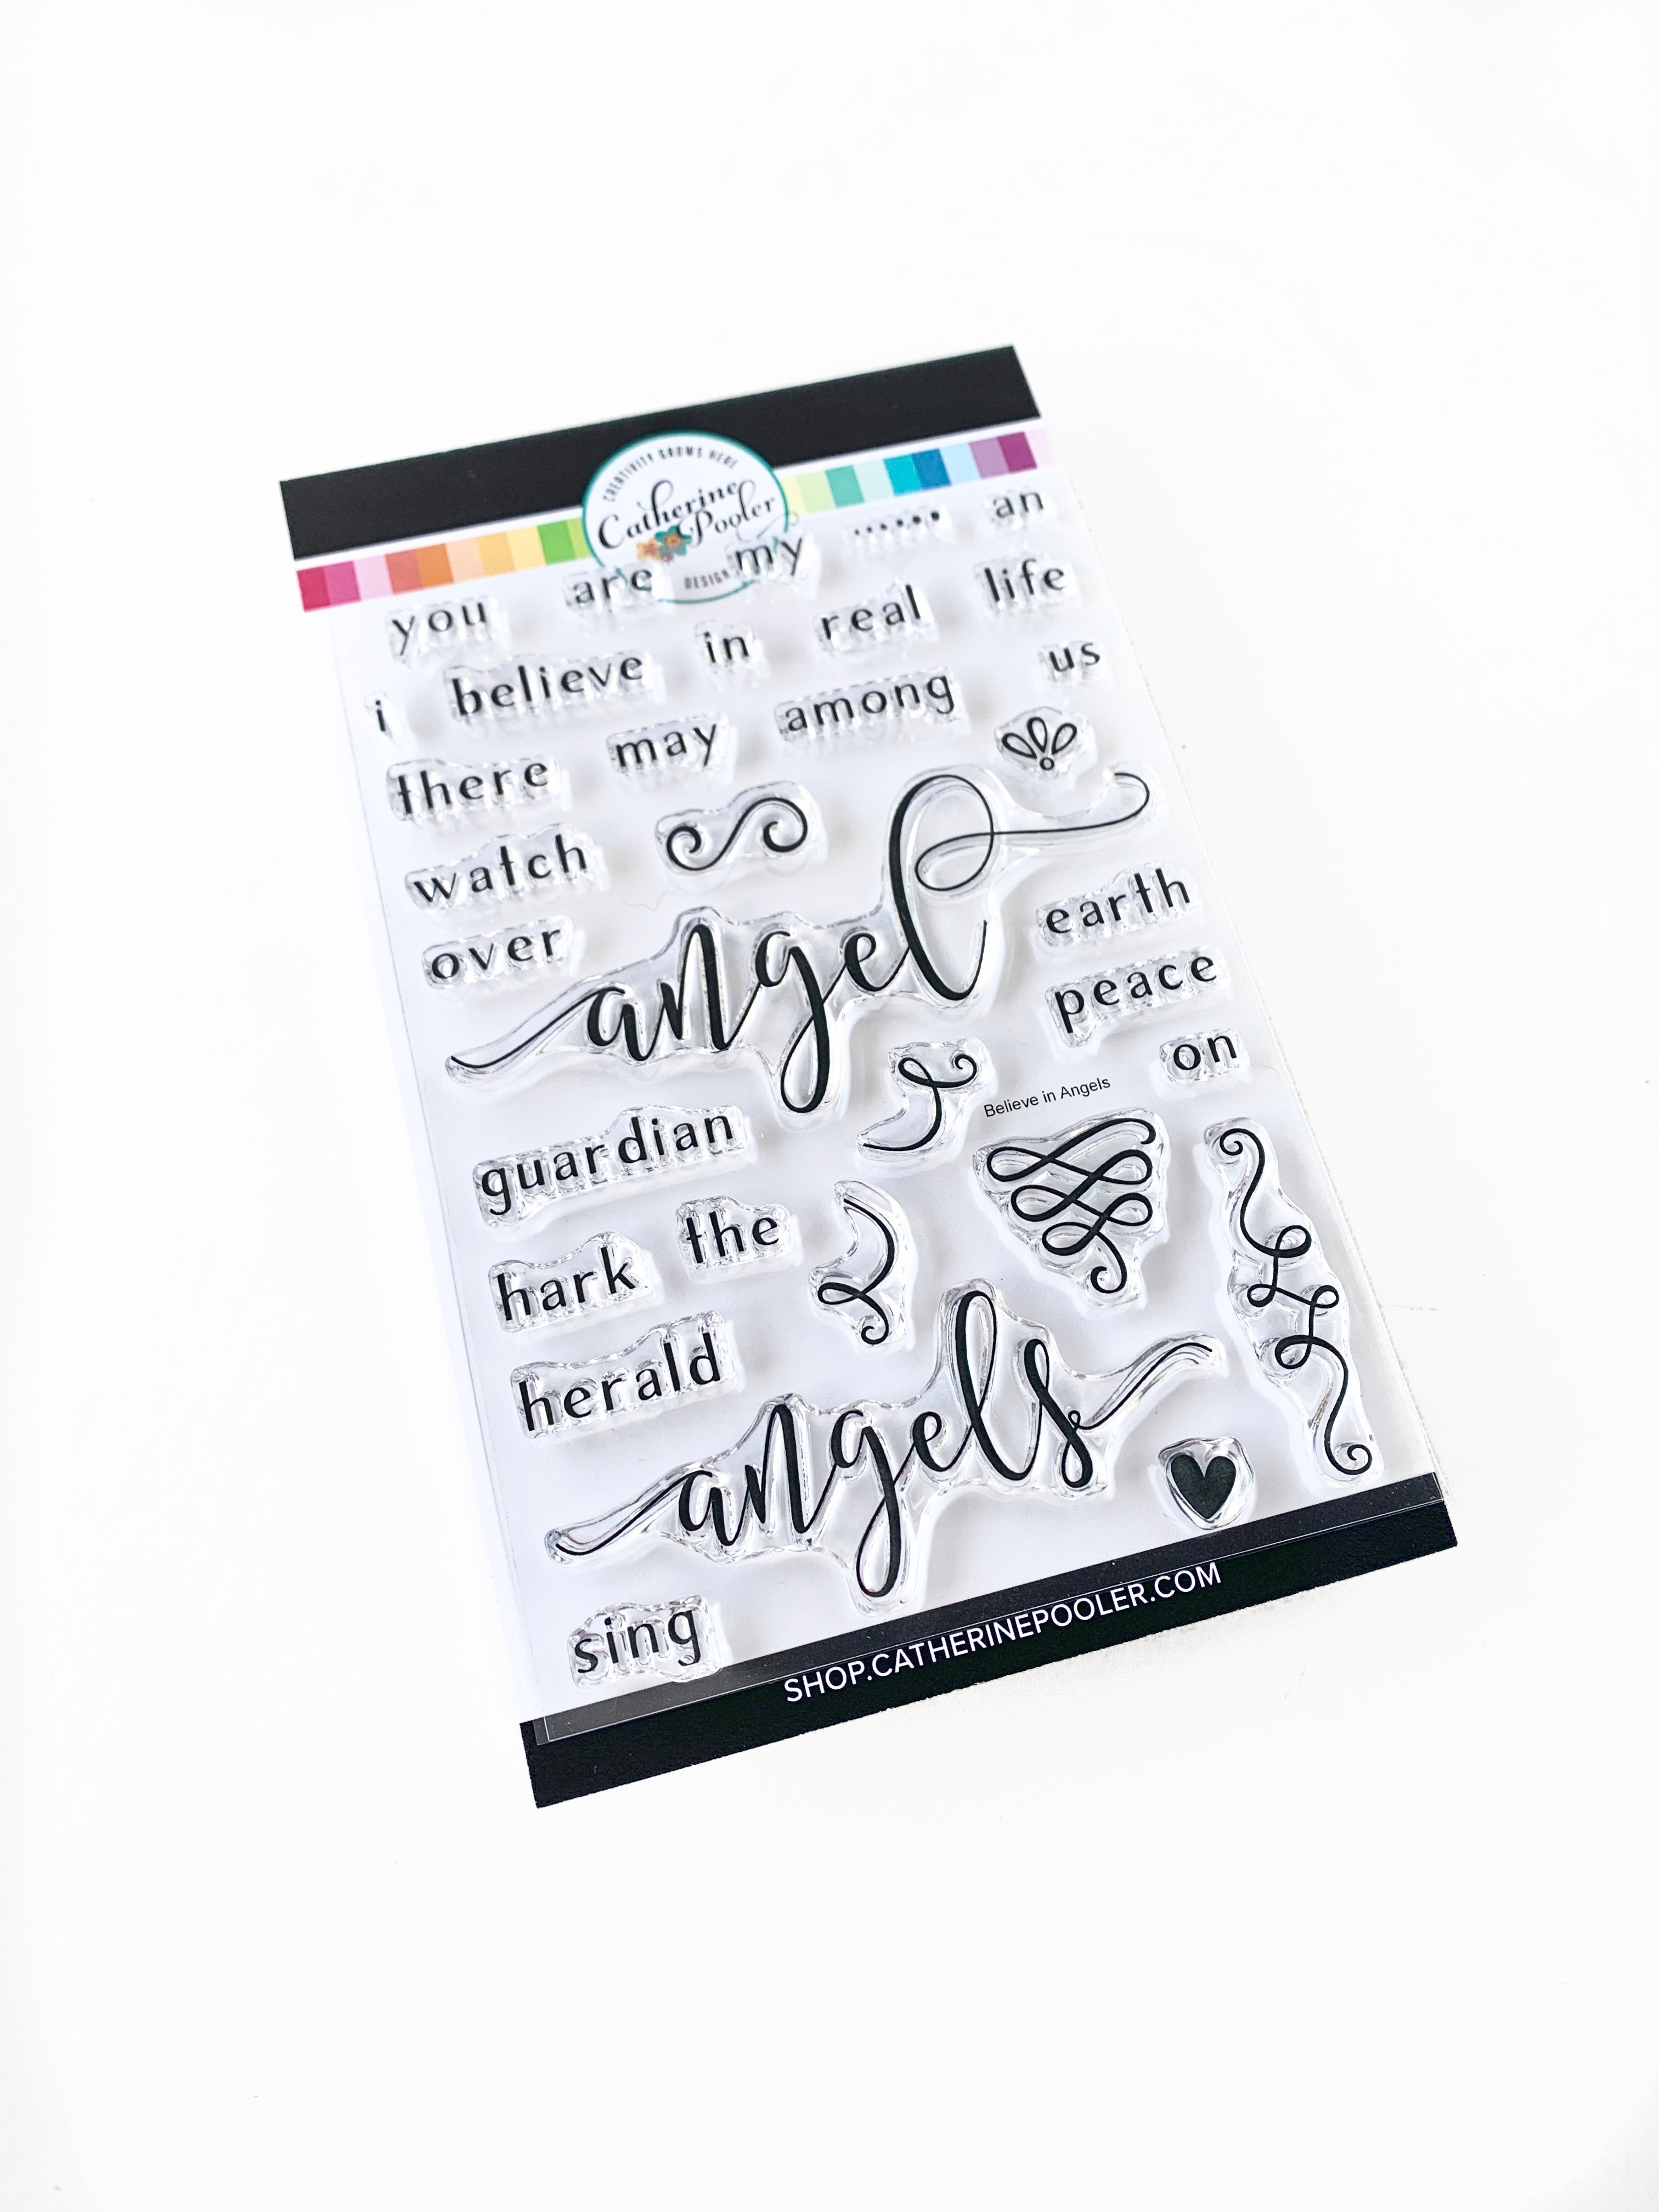 CREATIVITY GROWS HERE
Catherine
Pooler
DESIGN
you are my ...... an
i believe in real life
there may among us
watch
over
angel
earth
peace
on
Believe in Angels
guardian
hark the
herald
angels
sing
SHOP.CATHERINEPOOLER.COM